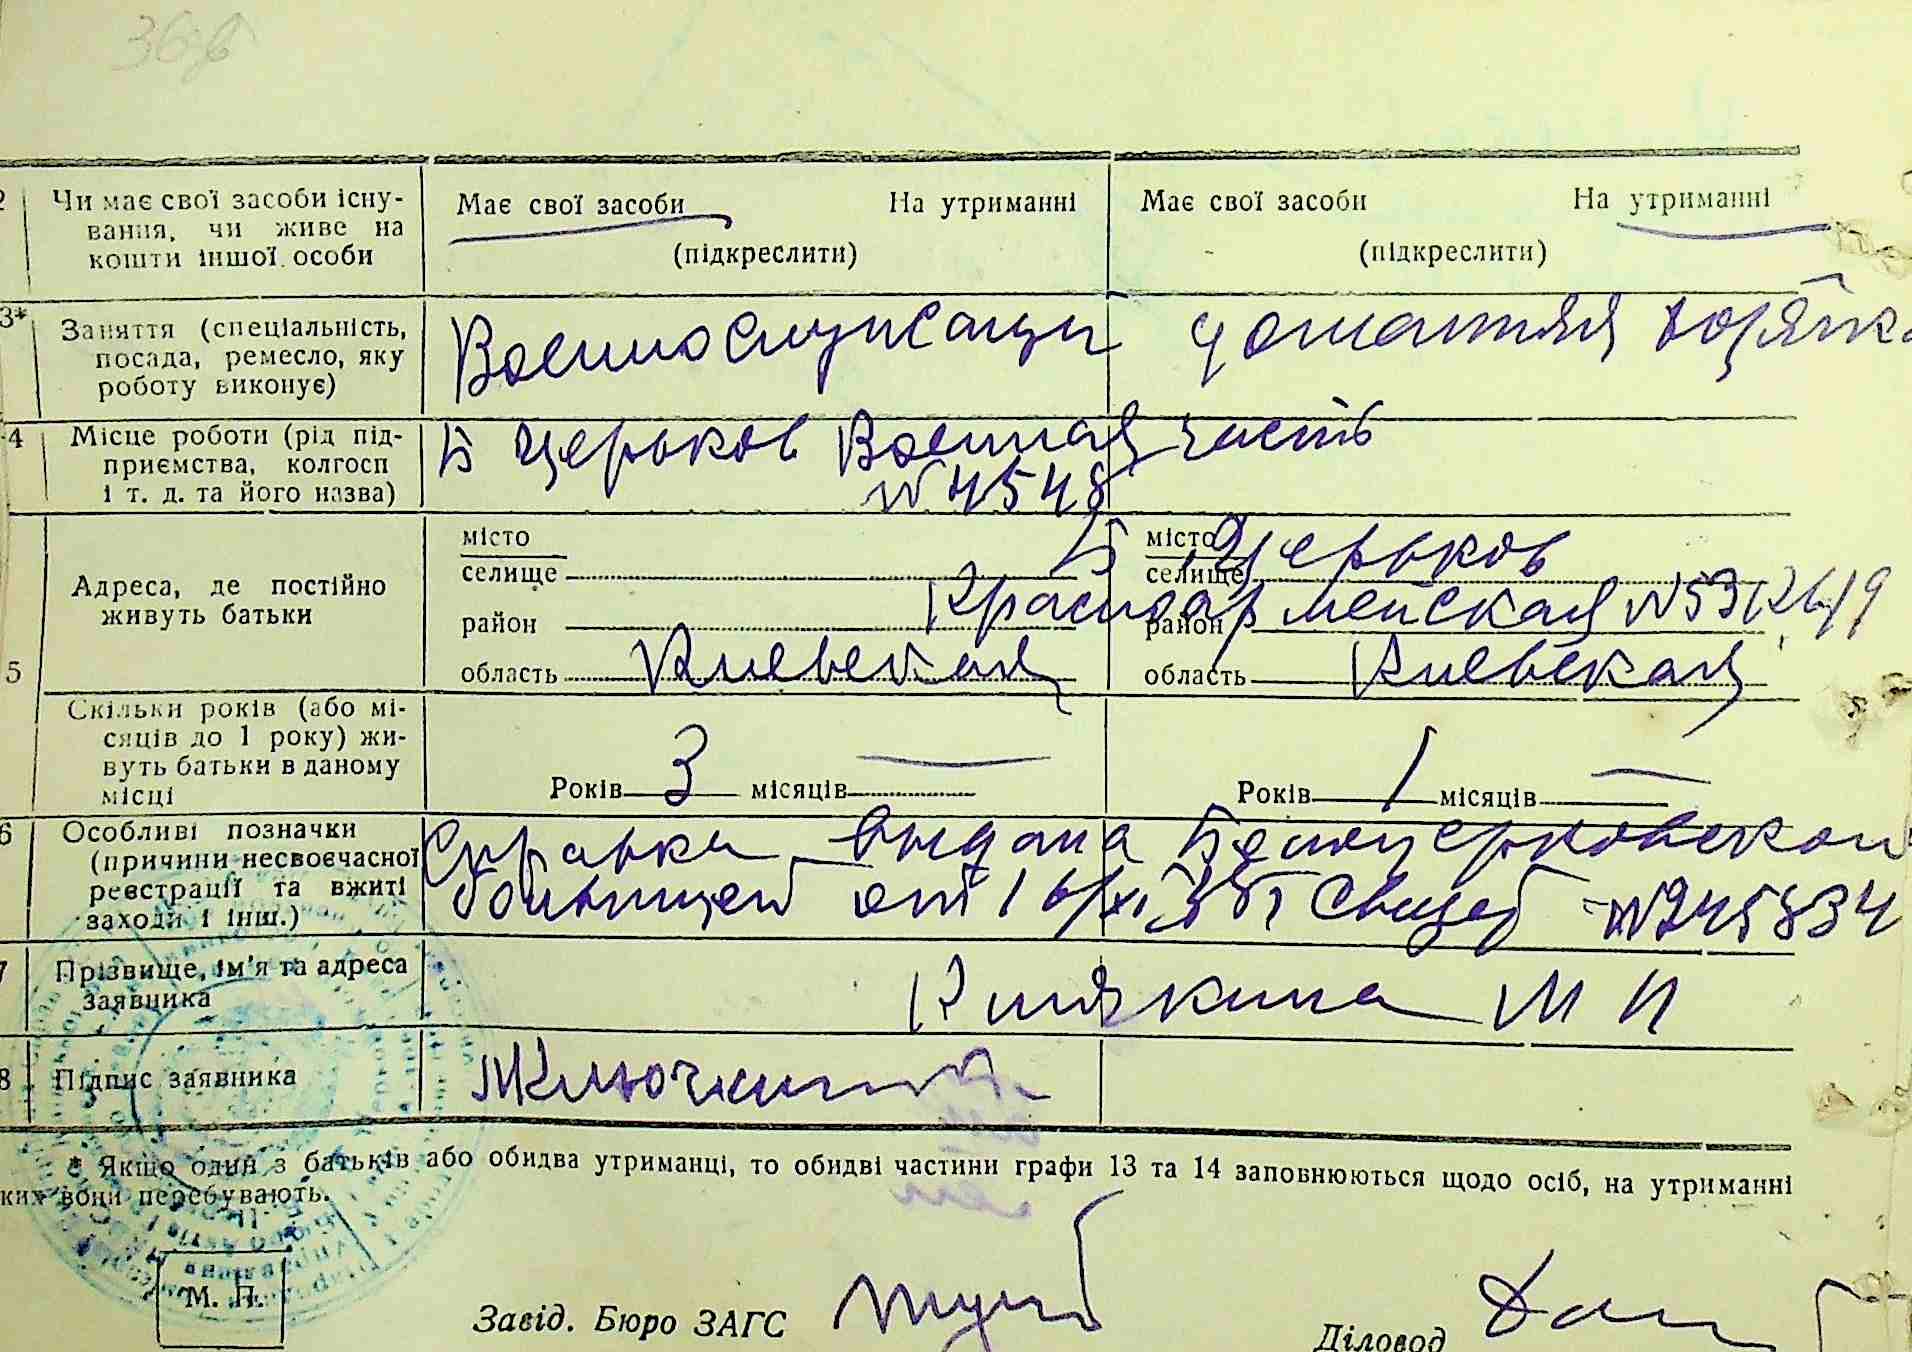 2 Чи має свої засоби існу- Має свої засоби На утриманні Має свої засоби На утриманні
вання, чи живе на
кошти іншої особи (підкреслити) (підкреслити)
3* Заняття (спеціальність, Военнослужащи домашняя
посада, ремесло, яку
роботу виконує)
4 Місце роботи (рід під- Б Церьков Военная часть
приємства, колгосп №4548
і т. д. та його назва)
місто місто Б Церьков
селище селище
Адреса, де постійно
живуть батьки
район район Красноармейская №53
5 область Киевская область Киевская
Скільки років (або мі-
сяців до 1 року) жи-
вуть батьки в даному
місці Років 3 місяців — Років 1 місяців —
6 Особливі позначки Справка выдана Белоцерковской
(причини несвоєчасної
реєстрації та вжиті больницей от Свид №245834
заходи і інш.)
7 Прізвище, ім'я та адреса
заявника М
8 Підпис заявника
* Якщо один з батьків або обидва утриманці, то обидві частини графи 13 та 14 заповнюються щодо осіб, на утриманні
ких вони перебувають.
М. П.
Завід. Бюро ЗАГС Діловод